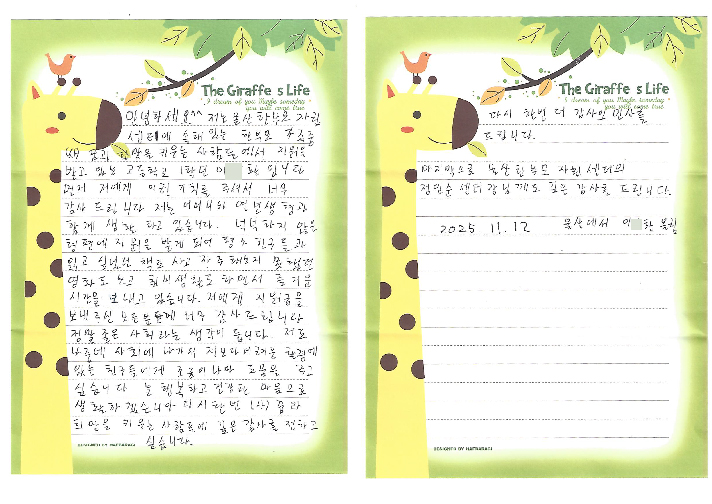 The Giraffe s Life
I dream of you Maybe someday
you will come true
안녕하세요^^ 저는 논산 한부모 자원
센터에 속해 있는 한부모 가족중
꿈과 희망을 키우는 사람들에서 지원을
받고 있는 고등학교 1학년 이 환 입니다
먼저 저에게 이런 기회를 주셔서 너무
감사 드립니다 저는 어머니와 연년생 형과
함께 생활 하고 있습니다. 넉넉하지 않은
형편에 지원을 받게 되어 평소 친구들과
읽고 싶었던 책도 사고 자주 하지 못했던
영화도 보고 취미생활도 하면서 즐거운
시간을 보내고 있습니다. 저에게 지원금을
보내주신 모든분들께 너무 감사드립니다
정말 좋은 사회라는 생각이 듭니다. 저도
나중에 사회에 나가서 저보다 어려운 환경에
있는 친구들에게 조금이나마 도움을 주고
싶습니다 늘 행복하고 건강한 마음으로
생활하겠습니다 다시 한번 꿈과
희망을 키우는 사람들에 깊은 감사를 전하고
싶습니다.
DESIGNED BY HAFBARAGI
The Giraffe s Life
I dream of you Maybe someday
you will come true
다시 한번 더 감사의 인사를
드립니다.
마지막으로 논산 한부모 자원센터의
센터장님께도 깊은 감사를 드립니다.
2025 11. 12 논산에서 이 환 올림
DESIGNED BY HAFBARAGI